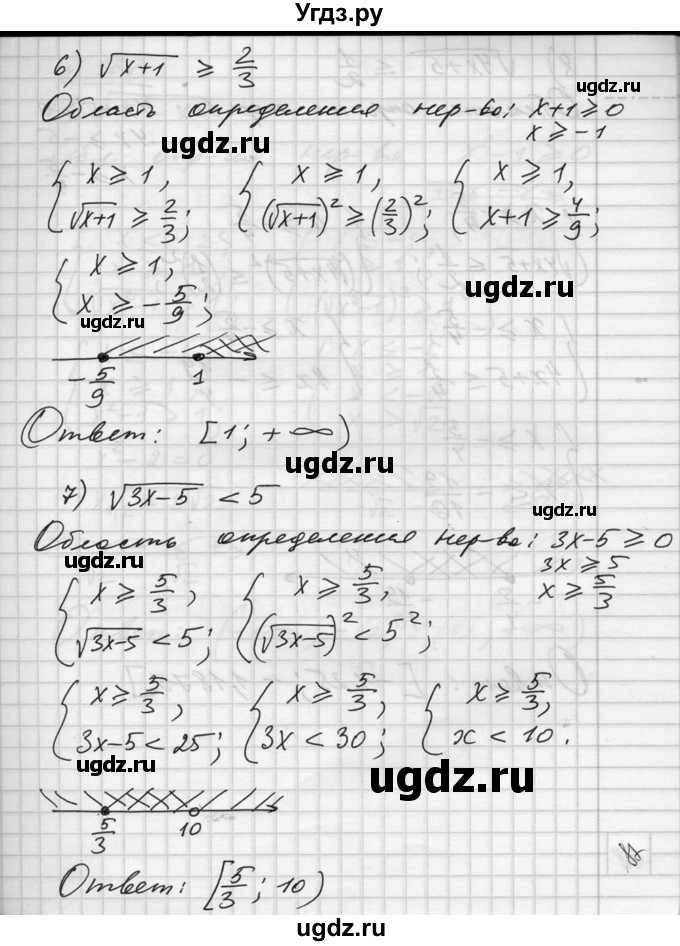 Угдз.ру
6) √(x+1) ≥ 2/3
Область определения нер-ва: x+1 ≥ 0
ugdz.ru
x ≥ -1
ugdz.ru
{ x ≥ 1, √(x+1) ≥ 2/3; { x ≥ 1, (√(x+1))² ≥ (2/3)²; { x ≥ 1, x+1 ≥ 4/9;
ugdz.ru
{ x ≥ 1, x ≥ -5/9;
ugdz.ru
-5/9 1
Ответ: [1; +∞)
ugdz.ru
7) √(3x-5) < 5
ugdz.ru
Область определения нер-ва: 3x-5 ≥ 0
ugdz.ru
3x ≥ 5
x ≥ 5/3
{ x ≥ 5/3, √(3x-5) < 5; { x ≥ 5/3, (√(3x-5))² < 5²;
{ x ≥ 5/3, 3x-5 < 25; { x ≥ 5/3, 3x < 30; { x ≥ 5/3, x < 10.
ugdz.ru
ugdz.ru
5/3 10
Ответ: [5/3; 10)